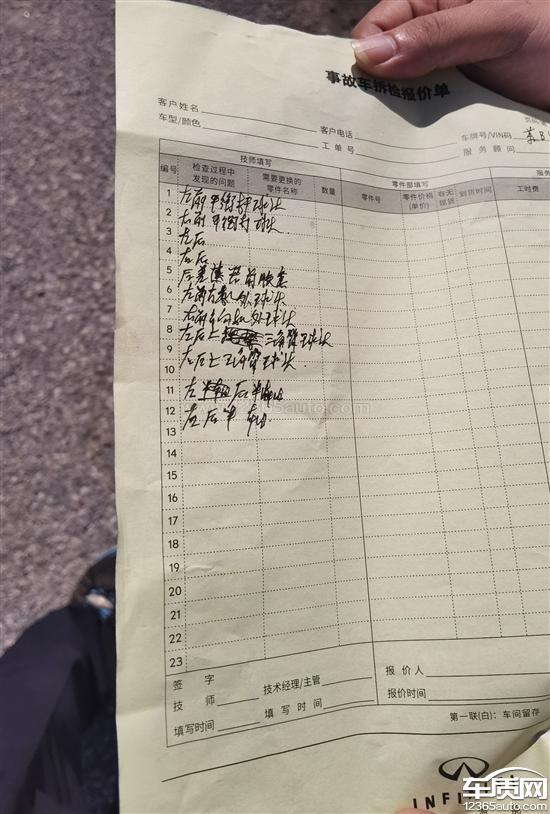 事故车拆检报价单
客户姓名
车型/颜色
客户电话
工单号
车牌号/VIN码 苏B
服务顾问
技师填写
零件部填写
服务
编号 检查过程中发现的问题 需要更换的零件名称 数量 零件号 零件价格(单价) 有无现货 到货时间 工时费
1 左前平衡杆球头
2 右前平衡杆球头
3 左后
4 右后
5 后差速器前胶套
6 左前方向机外球头
7 右前方向机外球头
8 左后上三角臂球头
9 右后上三角臂球头
10
11 左
12 后半轴
13
14
15
16
17
18
19
20
21
22
23
签字
技师
技术经理/主管
填写时间
填写时间
报价人
报价时间
第一联(白)：车间留存
INFINI
车质网
12365auto.com
www.12365auto.com